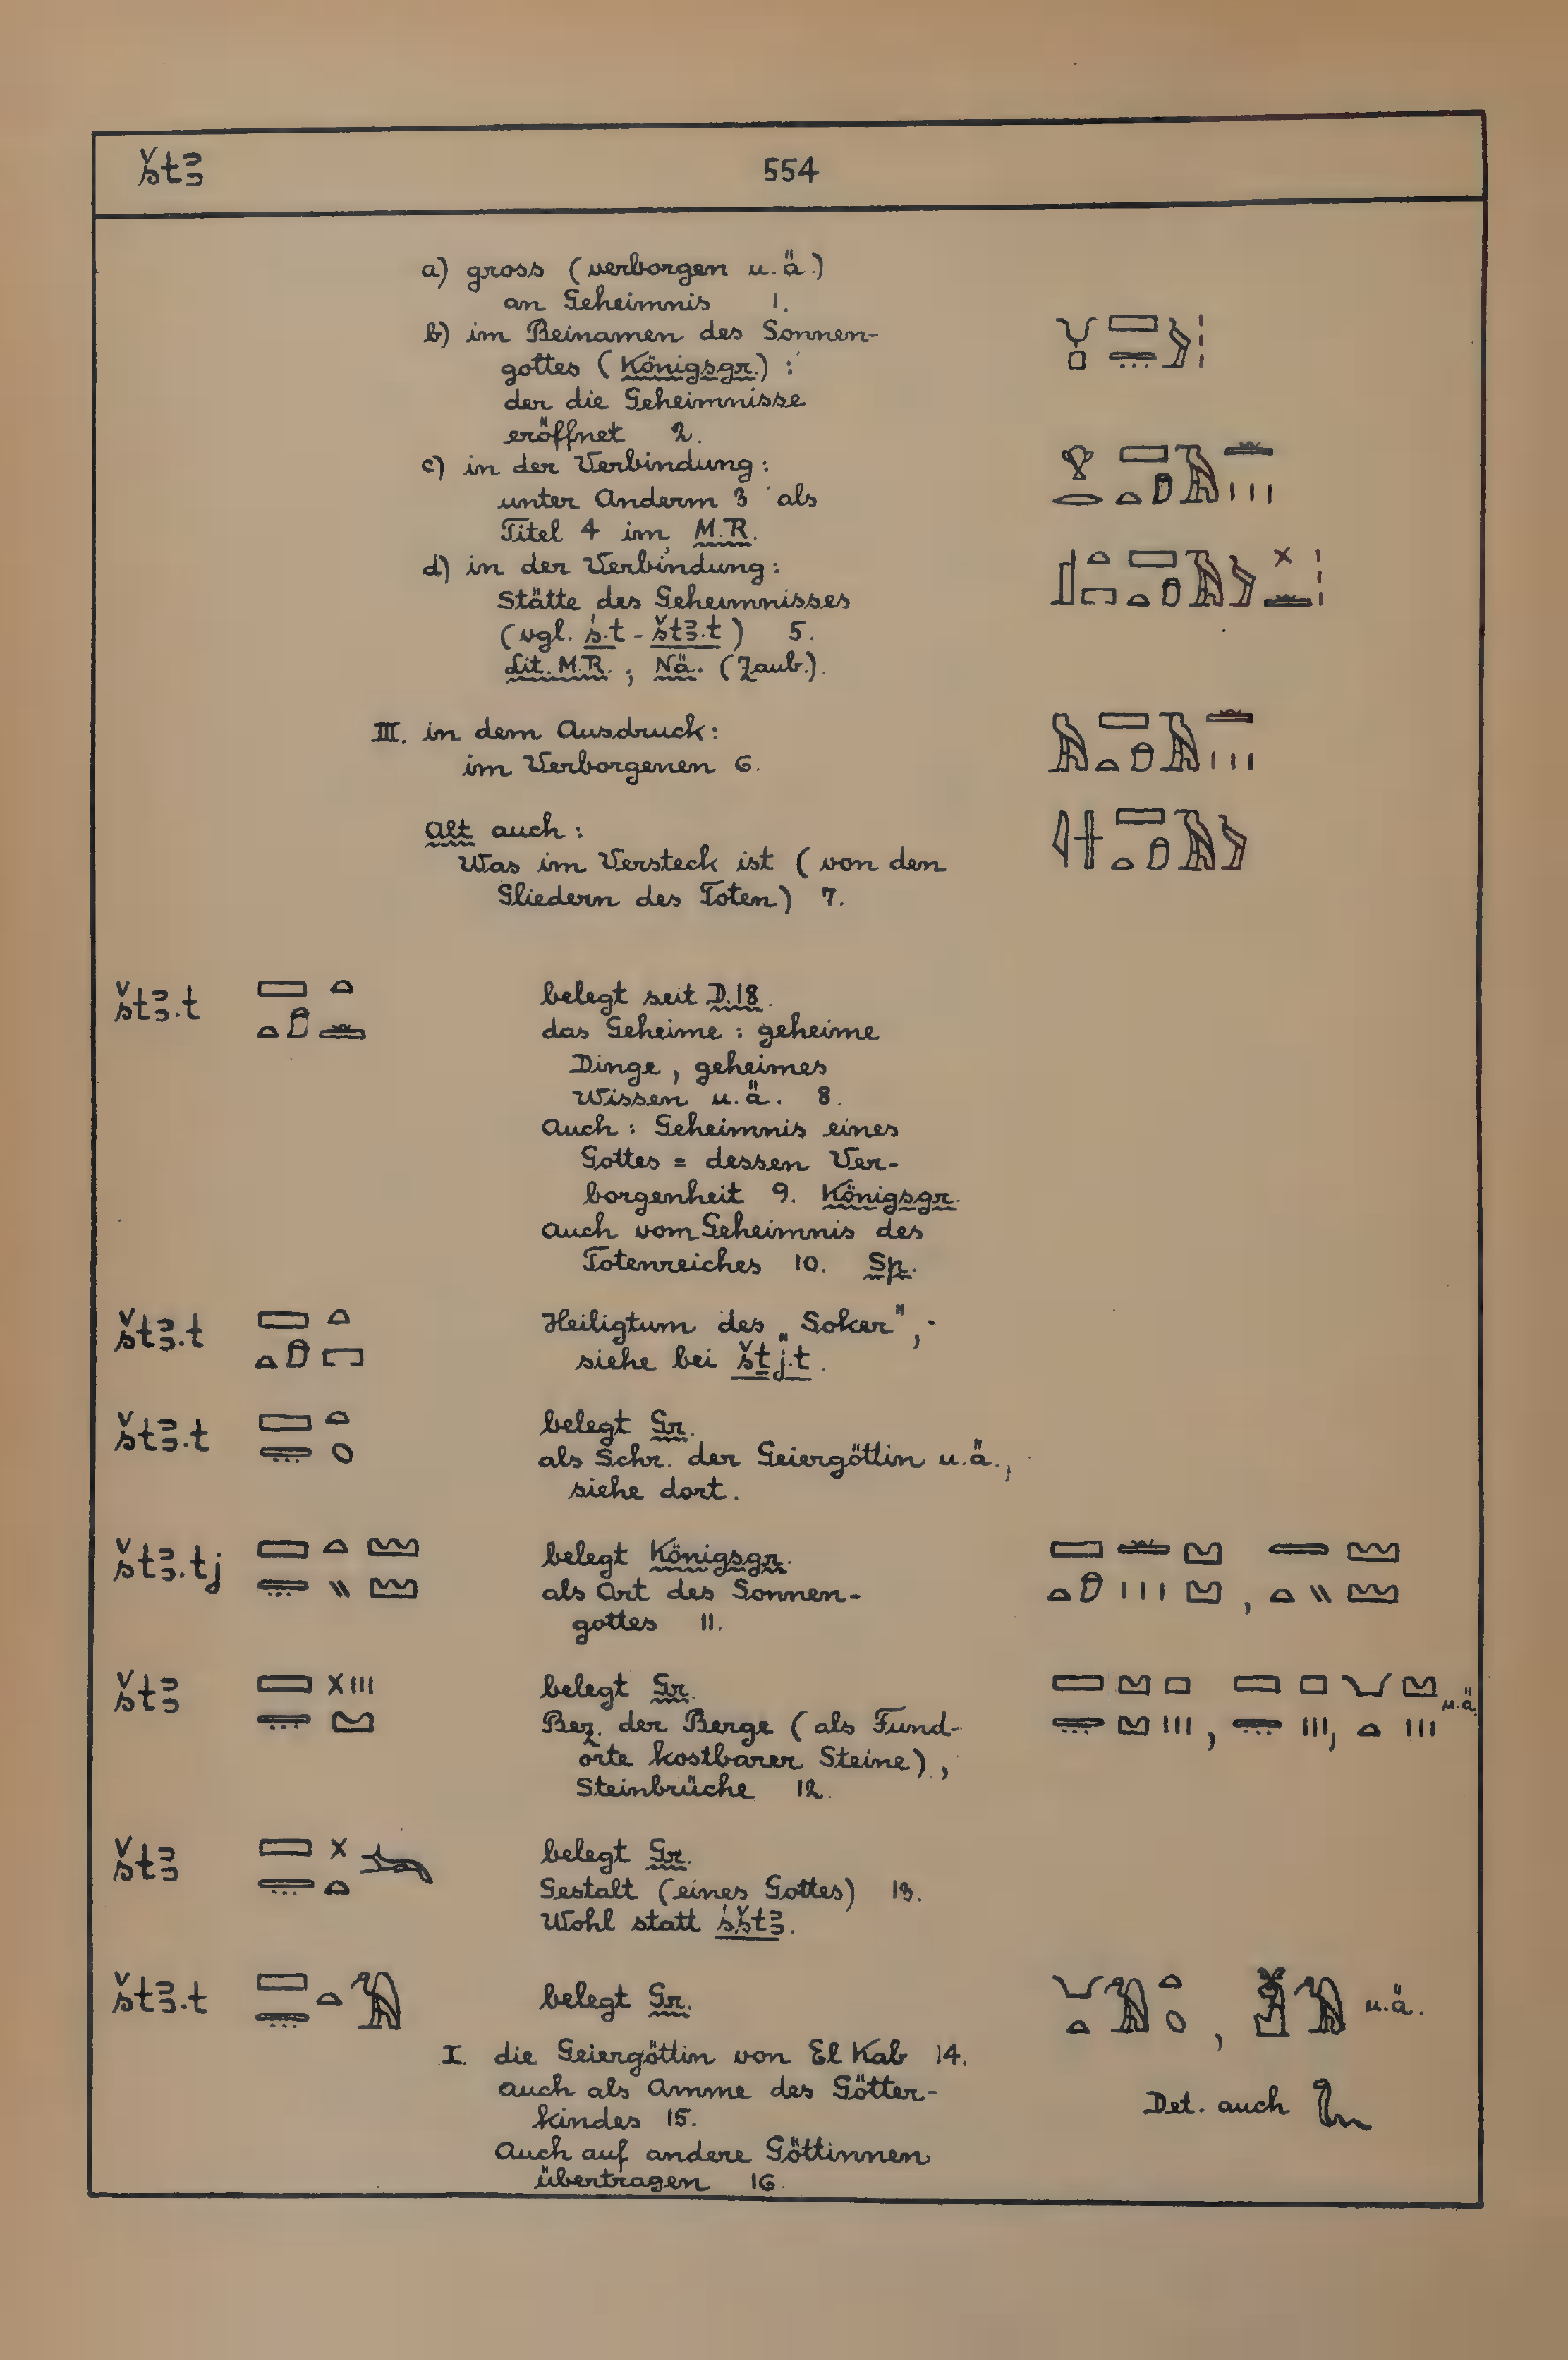 štꜣ 554
a) gross (verborgen u.ä.)
an Geheimnis 1.
b) im Beinamen des Sonnen-
gottes (Königsgr.) :
der die Geheimnisse
eröffnet 2.
c) in der Verbindung:
unter Anderm 3 als
Titel 4 im M.R.
d) in der Verbindung:
Stätte des Geheimnisses
(vgl. ś.t - štꜣ.t) 5.
Lit. M.R. ; Nä. (Zaub.).
III. in dem Ausdruck:
im Verborgenen 6.
Alt auch :
Was im Versteck ist (von den
Gliedern des Toten) 7.
štꜣ.t belegt seit D.18.
das Geheime : geheime
Dinge, geheimes
Wissen u.ä. 8.
Auch : Geheimnis eines
Gottes = dessen Ver-
borgenheit 9. Königsgr.
Auch vom Geheimnis des
Totenreiches 10. Sp.
štꜣ.t Heiligtum des „Soker",
siehe bei šṯj.t.
štꜣ.t belegt Gr.
als Schr. der Geiergöttin u.ä.,
siehe dort.
štꜣ.tj belegt Königsgr.
als Art des Sonnen-
gottes 11.
štꜣ belegt Gr. u.ä.
Bez. der Berge (als Fund-
orte kostbarer Steine),
Steinbrüche 12.
štꜣ belegt Gr.
Gestalt (eines Gottes) 13.
Wohl statt śštꜣ.
štꜣ.t belegt Gr. u.ä.
I. die Geiergöttin von El Kab 14.
auch als Amme des Götter-
kindes 15. Det. auch
Auch auf andere Göttinnen
übertragen 16.